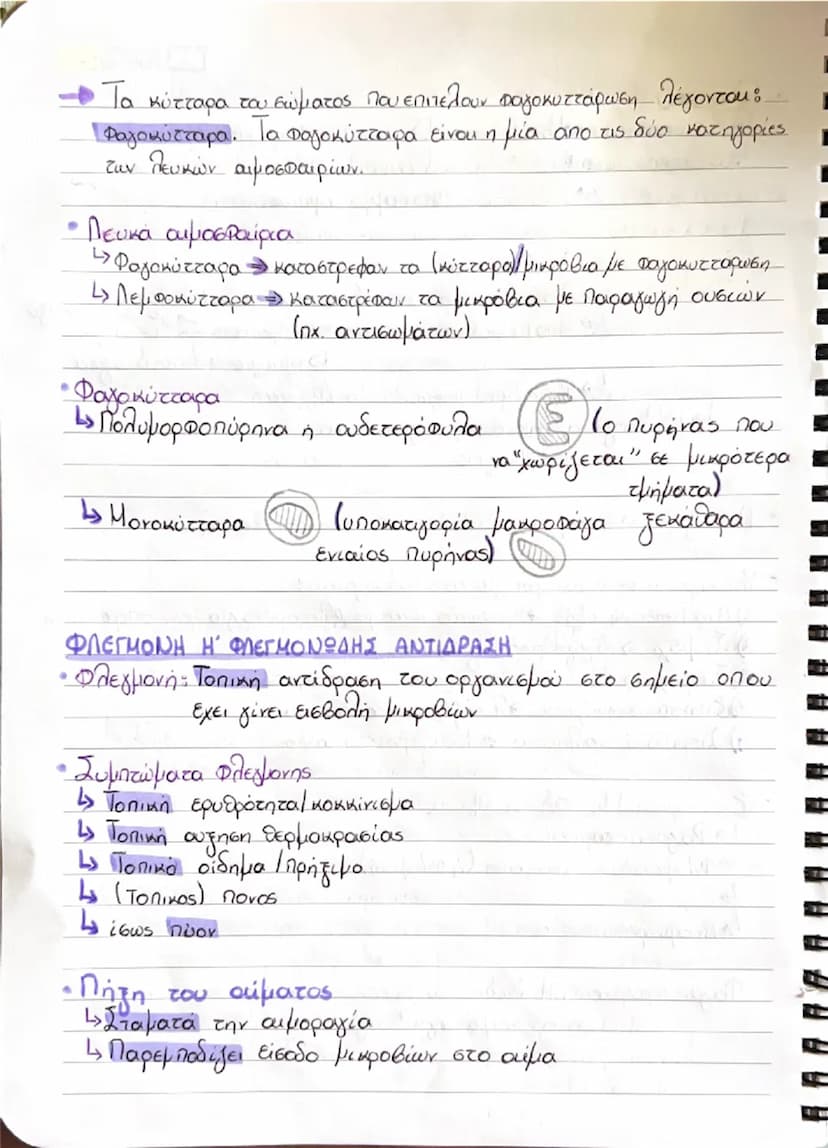 → Τα κύτταρα του σώματος που επιτελουν φαγοκυττάρωση λέγονται:
φαγοκύτταρα. Τα φαγοκύτταρα είναι η μία απο τις δύο κατηγορίες
των λευκών αιμοσφαιρίων.
• Λευκά αιμοσφαίρια
↳ Φαγοκύτταρα ⇒ καταστρεφαν τα (κύτταρα)/μικρόβια με φαγοκυττάρωση
↳ Λεμφοκύτταρα ⇒ καταστρέφαν τα μικρόβια με παραγωγή ουσιών
(πχ. αντισωμάτων)
• Φαγοκύτταρα
↳ Πολυμορφοπύρηνα ή ουδετερόφυλα (ο πυρήνας που
να "χωρίζεται" σε μικρότερα
τμήματα)
↳ Μονοκύτταρα (υποκατιγορία μακροφάγα ξεκάθαρα
ενιαίος πυρήνας)
ΦΛΕΓΜΟΝΗ Η' ΦΛΕΓΜΟΝΩΔΗΣ ΑΝΤΙΔΡΑΣΗ
• Φλεγμονή: Τοπική αντίδραση του οργανισμού στο σημείο οπου
εχει γίνει εισβολή μικροβίων
• Συμπτώματα φλεγμονης
↳ Τοπική ερυθρότητα/κοκκίνισμα
↳ Τοπική αυξηση θερμοκρασίας
↳ Τοπικό οίδημα/πρήξιμο
↳ (Τοπικος) πονος
↳ ίσως πύον
• Πήξη του αίματος
↳ Σταματά την αιμοραγία
↳ Παρεμποδίζει είσοδο μικροβίων στο αίμα